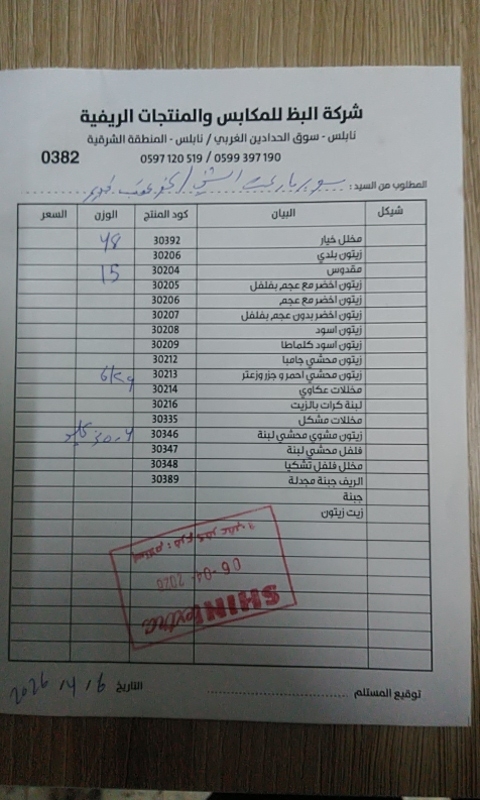 شركة البظ للمكابس والمنتجات الريفية
نابلس - سوق الحدادين الغربي / نابلس - المنطقة الشرقية
0382 0597 120 519 / 0599 397 190
المطلوب من السيد :
شيكل البيان كود المنتج الوزن السعر
مخلل خيار 30392 48
زيتون بلدي 30206
مقدوس 30204 15
زيتون اخضر مع عجم بفلفل 30205
زيتون اخضر مع عجم 30206
زيتون اخضر بدون عجم بفلفل 30207
زيتون اسود 30208
زيتون اسود كلماطا 30209
زيتون محشي جامبا 30212
زيتون محشي احمر و جزر وزعتر 30213 6Kg
مخللات عكاوي 30214
لبنة كرات بالزيت 30216
مخللات مشكل 30335
زيتون مشوي محشي لبنة 30346
فلفل محشي لبنة 30347
مخلل فلفل تشكيا 30348
الريف جبنة مجدلة 30389
جبنة
زيت زيتون
06-04-2026
SHINI extra
توقيع المستلم التاريخ 6 / 4 / 2026